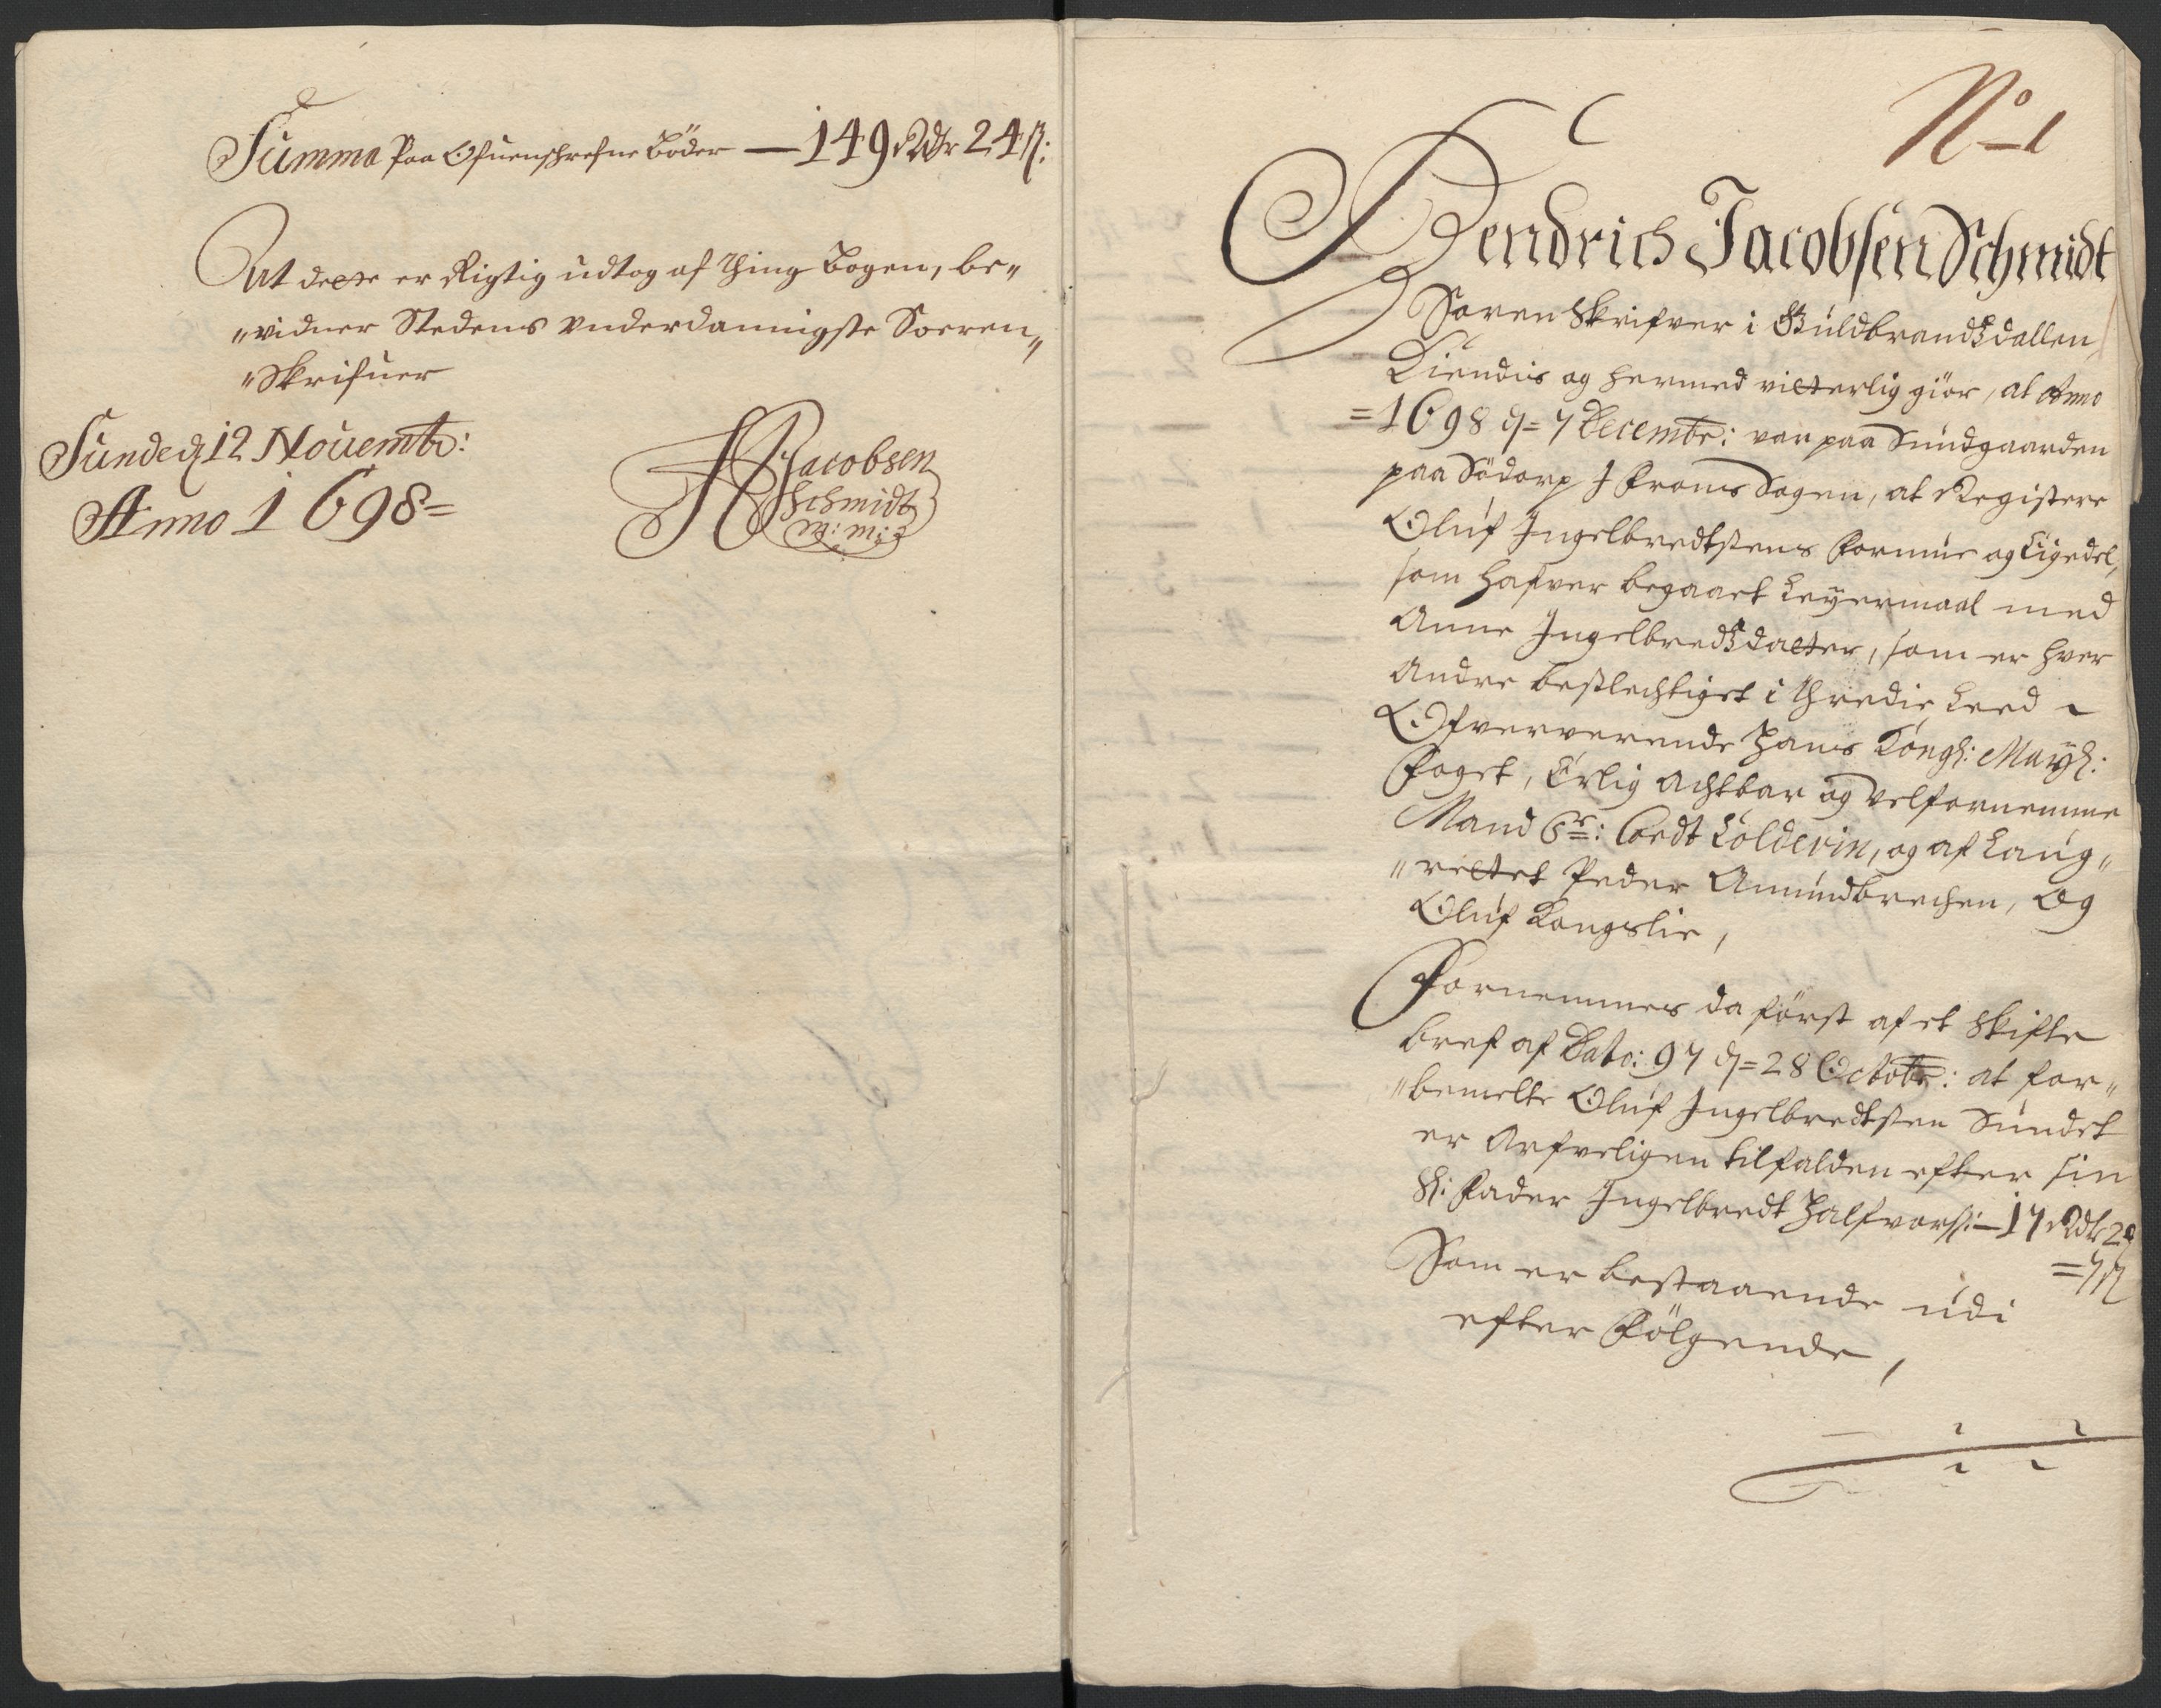 Summa paa Ofuenschrefne Böder — 149 Rdr 24 ß:
At dette er Rigtig udtog af Thing Bogen, be„
„vidner Stedens Vnderdannigste Soeren„
„Skrifuer
Sunde d 12 Nouembr:
Anno 1698=
HJacobsen
Schmidt
m: m:
No 1
Hendrich Jacobsen Schmidt
Soren Skrifver i Guldbrandsdallen
Kiendis og hermed vitterlig giör, at Anno
=1698 d= 7 Decembr: var paa Sundgaarden
paa Södorp J Froens Sogen, at Registere
Oluf Ingelbredtsens formue og Eigedel,
som hafver begaaet Leyermaal med
Anne Ingelbredsdatter, som er hver
Andre beslechtiget i Thredie Leed
Ofververende Hans Kongl: Mayt:
Foget, Erlig Achtbar og velfornemme
Mand Sr: Cordt Coldevin, og af Laug„
„rettet Peder Amundbrechen, Og
Oluf Kongslie,
Fornemmes da först af et skifte
bref af Dato: 97 d= 28 Octobr: at for„
„bemelte Oluf Ingelbredtsen Sundet
er Arfveligen tilfalden efter sin
Sl: Fader Ingelbredt Halfvors: — 17 Rdr 2
=7 ß
Som er bestaaende udi
efter Fölgende,